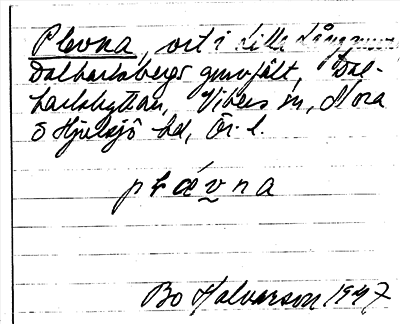 Plevna, ort i Lilla Långgruve
Dalkarlsbergs gruvfält, Dal-
karlshyttan, Vikers sn, Nora
o Hjulsjö bd, Ör. l.
plævna
Bo Halvarson 1947